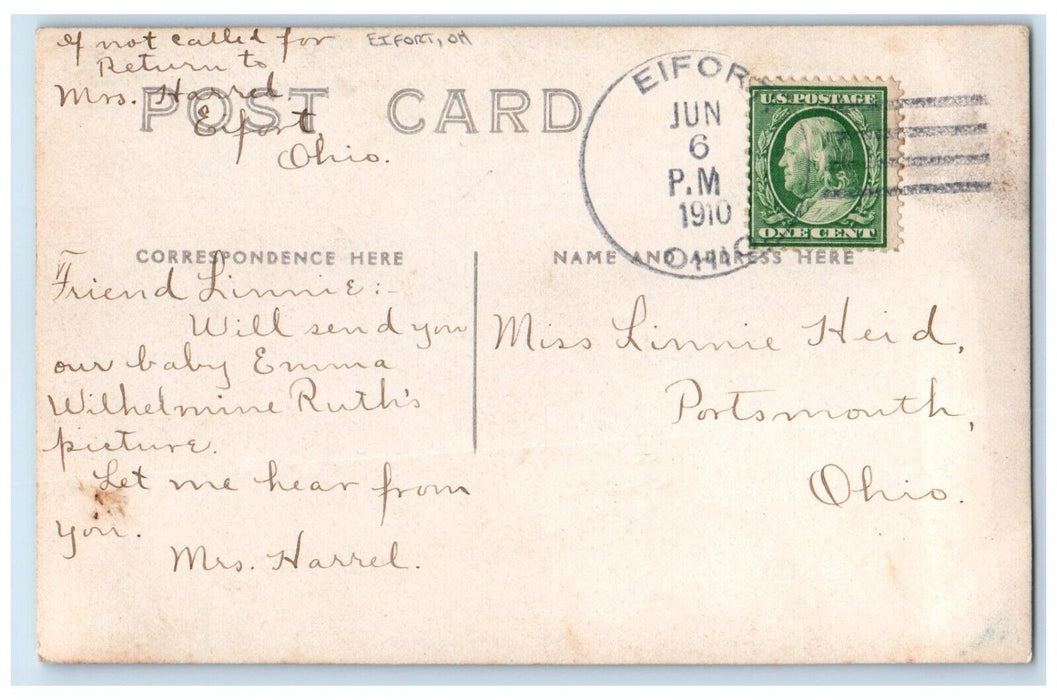 If not called for
Return to
Mrs. Harrel,
Eifort,
Ohio.
EIFORT, OH
POST CARD
EIFORT
JUN
6
P.M
1910
OHIO
U.S. POSTAGE
ONE CENT
CORRESPONDENCE HERE
NAME AND ADDRESS HERE
Friend Linnie:-
Will send you
our baby Emma
Wilhelmine Ruth's
picture.
Let me hear from
you.
Mrs. Harrel.
Miss Linnie Heid,
Portsmouth,
Ohio.